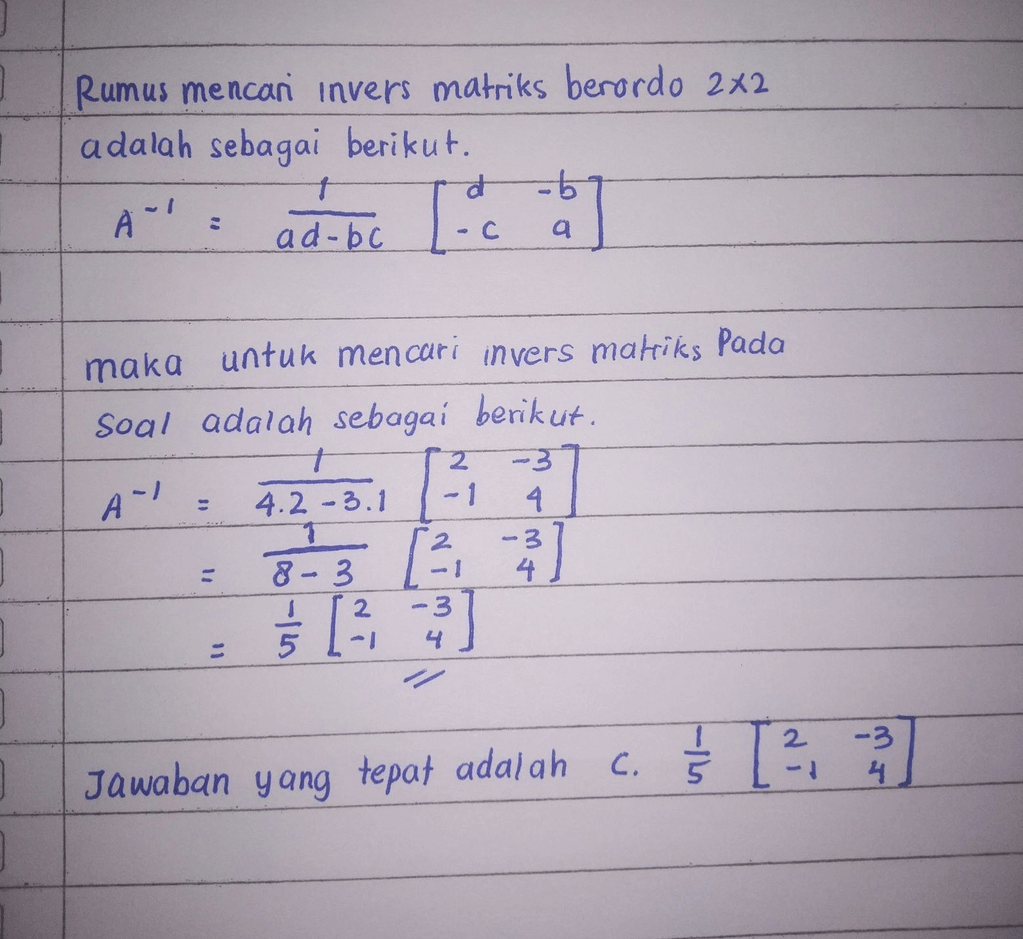 Rumus mencari invers matriks berordo 2x2
adalah sebagai berikut.
A⁻¹ = 1/(ad-bc) [d -b; -c a]
maka untuk mencari invers matriks Pada
Soal adalah sebagai berikut.
A⁻¹ = 1/(4.2 - 3.1) [2 -3; -1 4]
= 1/(8 - 3) [2 -3; -1 4]
= 1/5 [2 -3; -1 4]
Jawaban yang tepat adalah C. 1/5 [2 -3; -1 4]